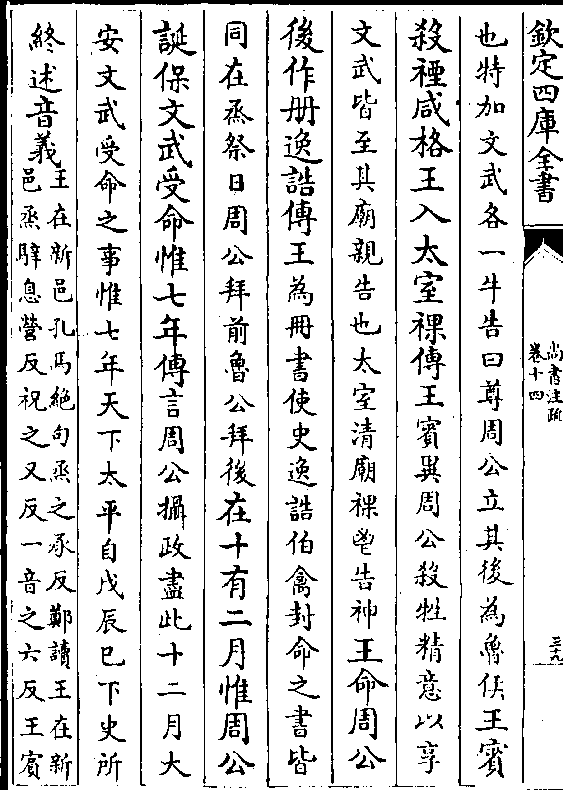 欽定四庫全書
尚書注疏
卷十四
三十九
也特加文武各一牛告曰尊周公立其後為魯侯王賓
殺禋咸格王入太室祼傳王賓異周公殺牲精意以享
文武皆至其廟親告也太室清廟祼鬯告神王命周公
後作册逸誥傳王為冊書使史逸誥伯禽封命之書皆
同在烝祭日周公拜前魯公拜後在十有二月惟周公
誕保文武受命惟七年傳言周公攝政盡此十二月大
安文武受命之事惟七年天下太平自戊辰巳下史所
終述音義王在新邑孔馬絶句烝之承反鄭讀王在新
邑烝騂息營反祝之又反一音之六反王賓